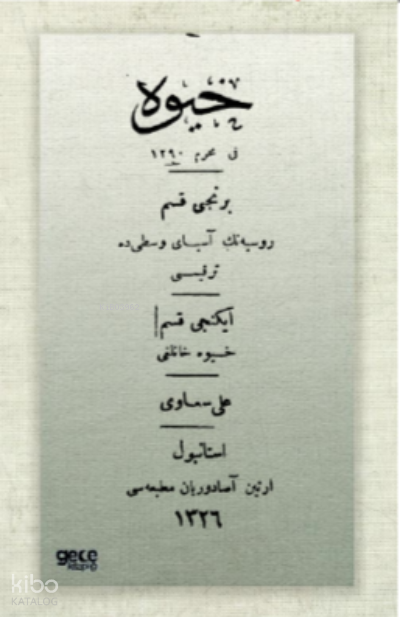 خیوه
فی محرم ١٢٩٠
برنجی قسم
روسیه‌نك آسیای وسطی‌ده
ترقیسی
ایكنجی قسم
خیوه خانلغی
علی سعاوی
استانبول
ارتین آصادوریان مطبعه‌سی
١٣٢٦
gece
kitaplığı
kibo
KATALOG